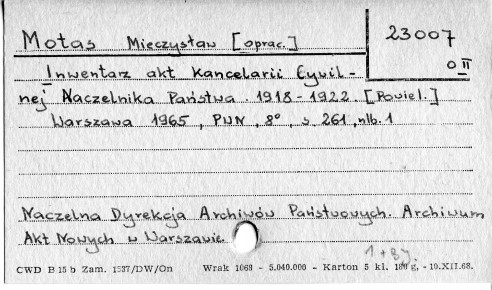 Motas Mieczysław [oprac.]
23007
0 II
Inwentarz akt Kancelarii Cywil-
nej Naczelnika Państwa. 1918-1922. [Powiel.]
Warszawa 1965, PWN, 8°, s. 261, nlb. 1
Naczelna Dyrekcja Archiwów Państwowych. Archiwum
Akt Nowych w Warszawie
1+89.
CWD B 15 b Zam. 1537/DW/On Wrak 1068 - 5.040.000 - Karton 5 kl. 180 g, - 10.XII.68.